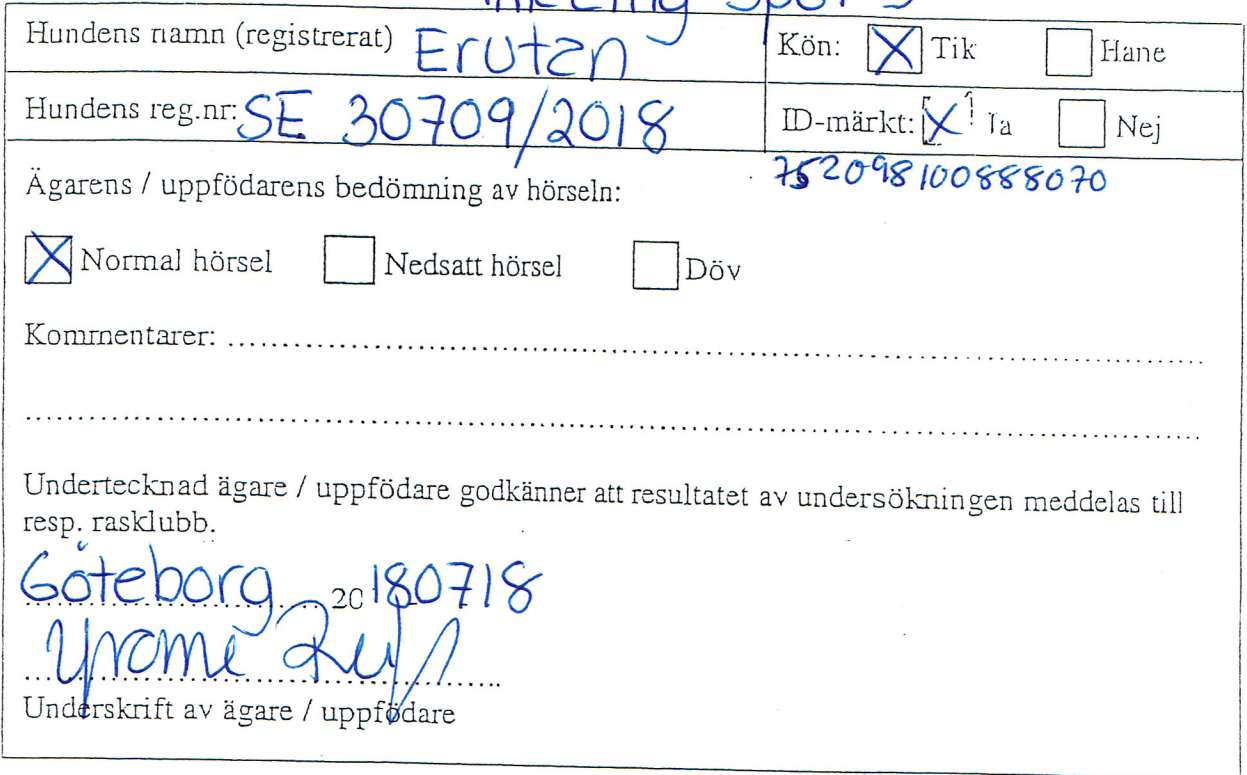 Hundens namn (registrerat) Erutan Kön: X Tik Hane
Hundens reg.nr: SE 30709/2018 ID-märkt: X Ja Nej
752098100888070
Ägarens / uppfödarens bedömning av hörseln:
X Normal hörsel Nedsatt hörsel Döv
Kommentarer:
Undertecknad ägare / uppfödare godkänner att resultatet av undersökningen meddelas till
resp. rasklubb.
Göteborg 20180718
Underskrift av ägare / uppfödare